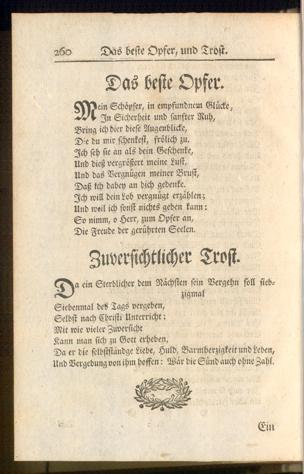 260 Das beste Opfer, und Trost.
Das beste Opfer.
Mein Schöpfer, in empfundnem Glücke,
In Sicherheit und sanfter Ruh,
Bring ich hier diese Augenblicke,
Die du mir schenkest, frölich zu.
Ich seh sie an als dein Geschenke,
Und dieß vergrössert meine Lust,
Und das Vergnügen meiner Brust,
Daß ich dabey an dich gedenke.
Ich will dein Lob vergnügt erzählen;
Und weil ich sonst nichts geben kann:
So nimm, o Herr, zum Opfer an,
Die Freude der gerührten Seelen.
Zuversichtlicher Trost.
Da ein Sterblicher dem Nächsten sein Vergehn soll sieb-
zigmal
Siebenmal des Tags vergeben,
Selbst nach Christi Unterricht:
Mit wie vieler Zuversicht
Kann man sich zu Gott erheben,
Da er die selbstständge Liebe, Huld, Barmherzigkeit und Leben,
Und Vergebung von ihm hoffen: Wär die Sünd auch ohne Zahl.
Ein